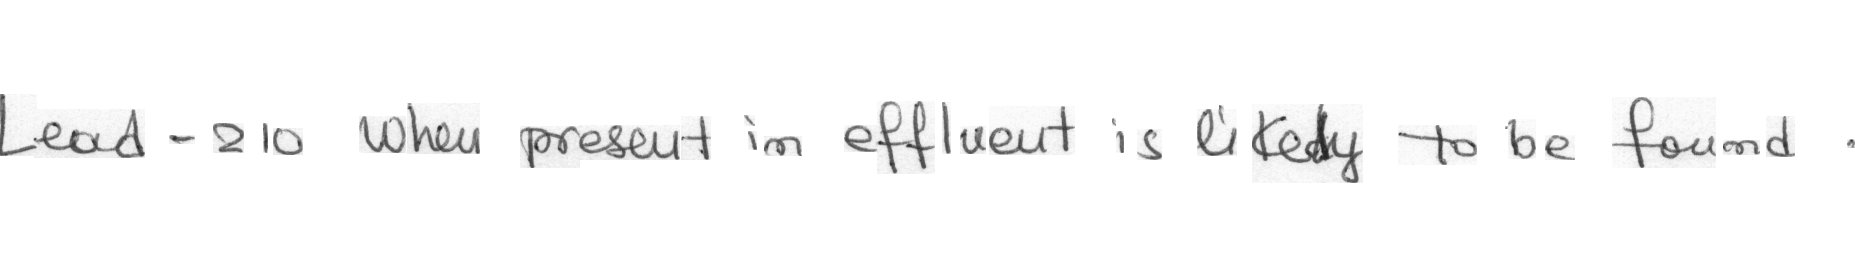 Lead-210 when present in effluent is likely to be found.